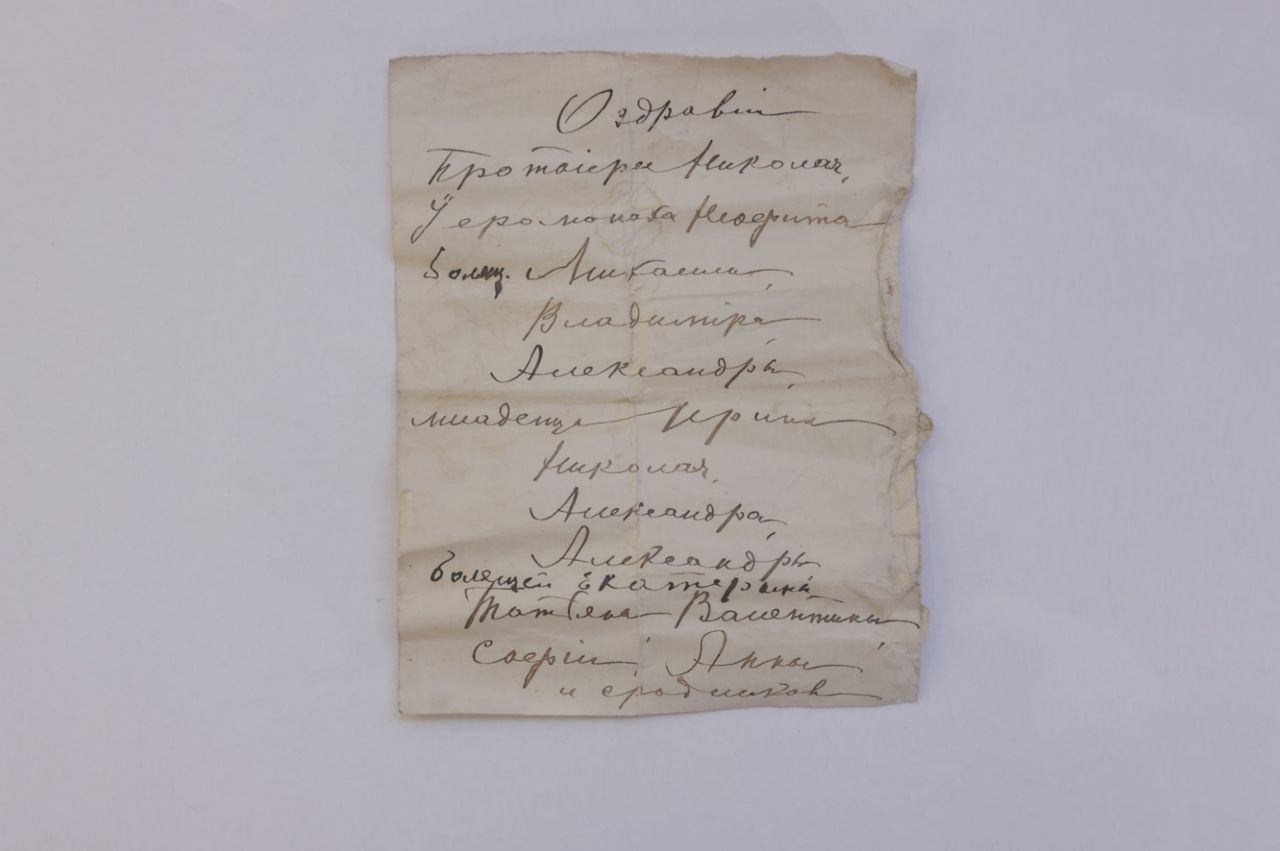 О здравіи
Протоіерея Николая,
Іеромонаха Неофита
болящ. Михаила,
Владиміра
Александры,
младенца Ирины
Николая,
Александра,
Александры
болящей Екатерины
Татіяны Валентины,
Софіи, Анны
и сродников